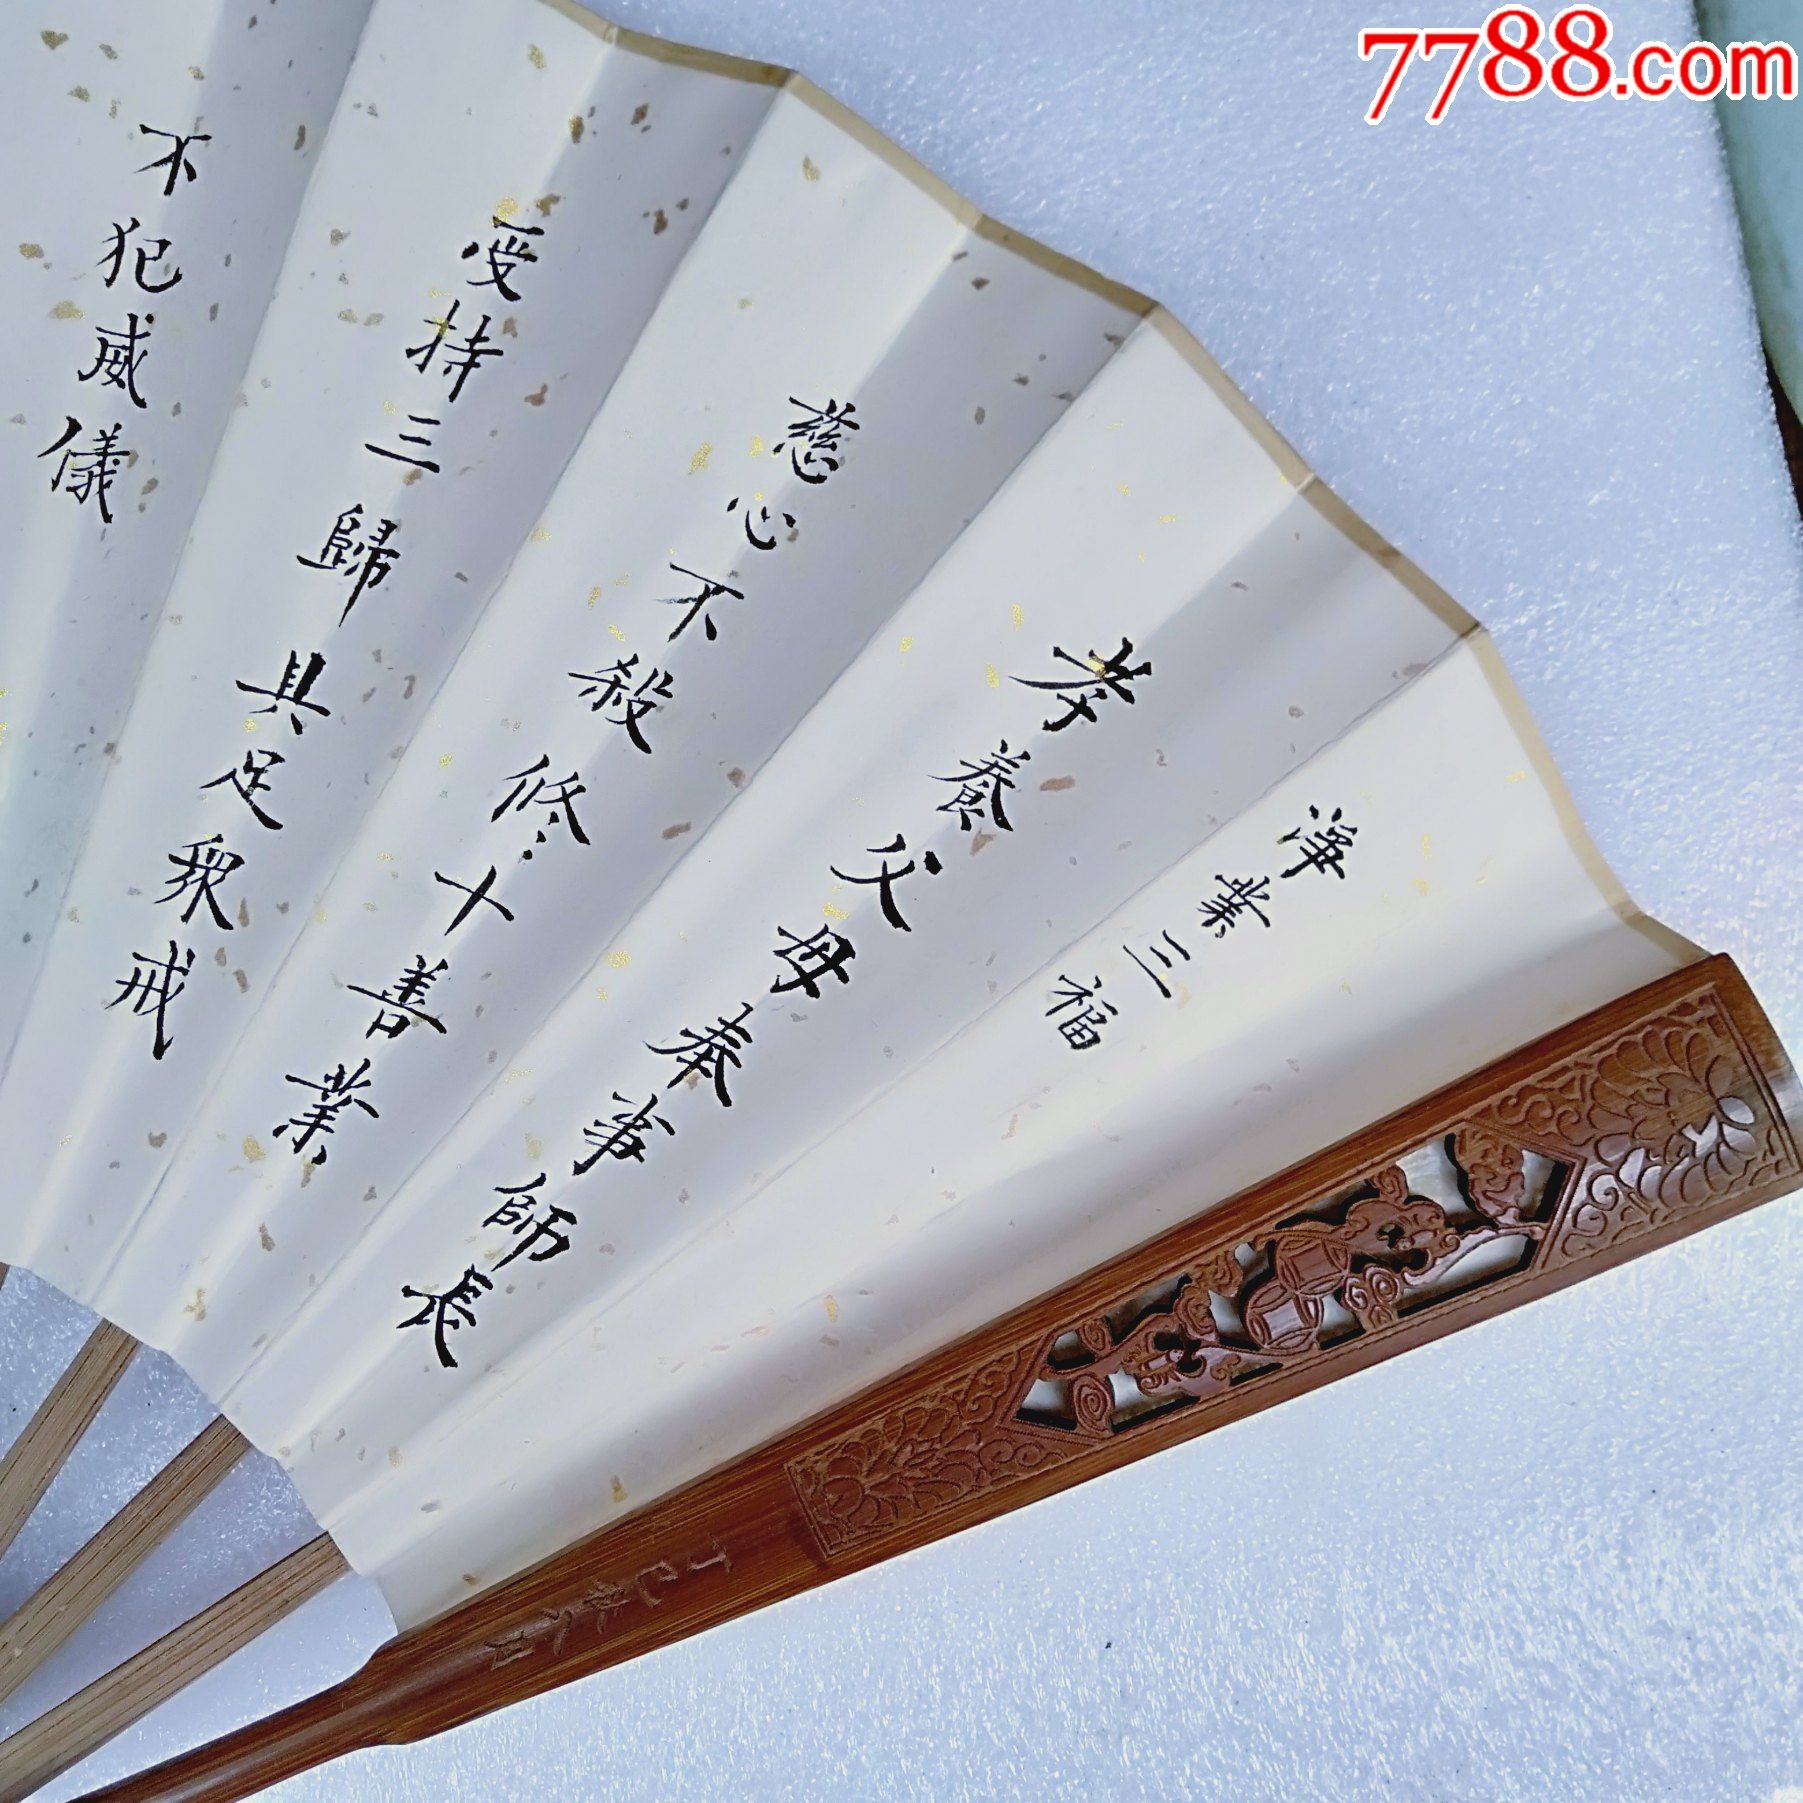 7788.com
淨業三福
孝養父母奉事師長
慈心不殺修十善業
受持三歸具足眾戒
不犯威儀
丁巳秋六月